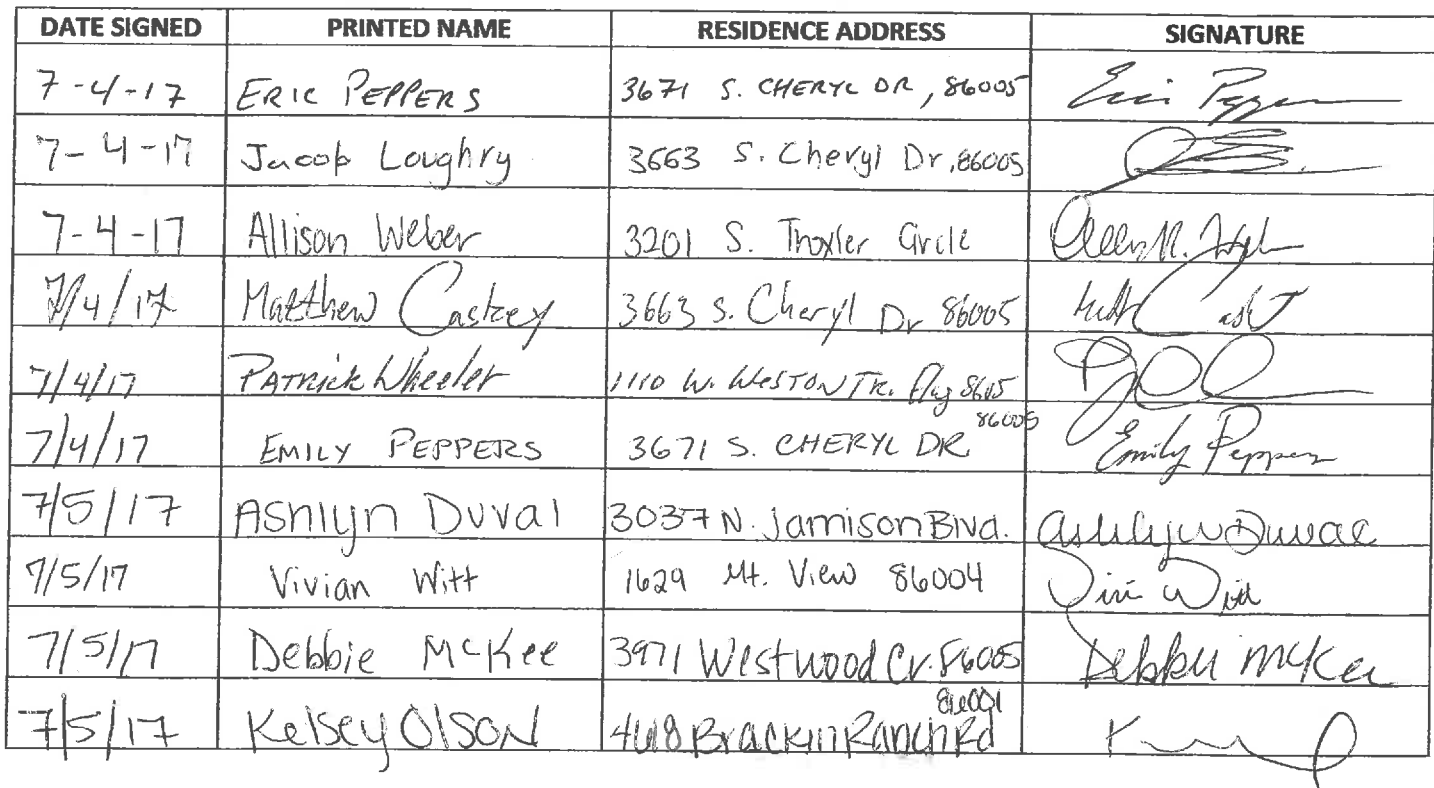 DATE SIGNED PRINTED NAME RESIDENCE ADDRESS SIGNATURE
7-4-17 ERIC PEPPERS 3671 S. CHERYL DR, 86005 Eric Pepper
7-4-17 Jacob Loughry 3663 S. Cheryl Dr, 86005
7-4-17 Allison Weber 3201 S. Troxler Circle
7/4/17 Matthew Caskey 3663 S. Cheryl Dr 86005 Matt Cask
7/4/17 PATRICK Wheeler 1110 W. WESTON TR. Flag
86005
7/4/17 EMILY PEPPERS 3671 S. CHERYL DR Emily Peppers
7/5/17 Ashlyn Duval 3037 N. Jamison Blvd. Ashlyn Duval
7/5/17 Vivian Witt 1629 Mt. View 86004 Vivi Witt
7/5/17 Debbie McKee 3971 Westwood Cr. 86005 Debbie McKee
86001
7/5/17 Kelsey Olson 4618 Brackin Ranch Rd